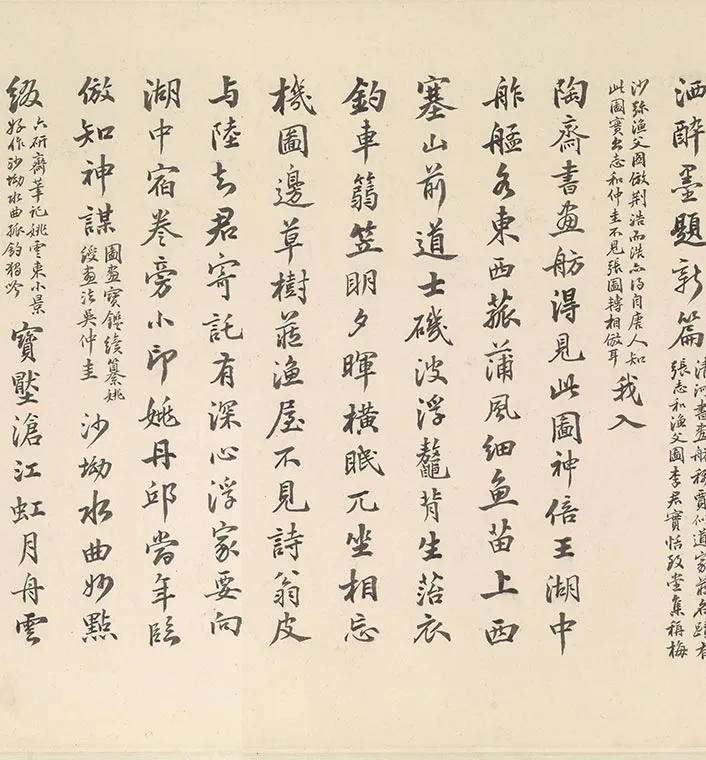 洒醉墨題新篇
清河書畫舫稱賈似道家藏名蹟有
張志和漁父圖李君實恬致堂集稱梅
沙彌漁父圖倣荆浩而浩亦得自唐人知
此圖實出志和仲圭不見張圖轉相倣耳
我入
陶齋書畫舫得見此圖神倍王湖中
舴艋各東西菰蒲風細魚苗上西
塞山前道士磯波浮鼇背生菭衣
釣車篛笠明夕暉橫眠兀坐相忘
機圖邊草樹藏漁屋不見詩翁皮
与陸知君寄託有深心浮家要向
湖中宿卷旁小印姚丹邱當年臨
倣知神謀
圖畫寶鑑續纂姚
綬畫法吳仲圭
沙坳水曲妙點
綴
六研齋筆記姚雲東小景
好作沙坳水曲孤釣獨吟
寶壓滄江虹月舟雲